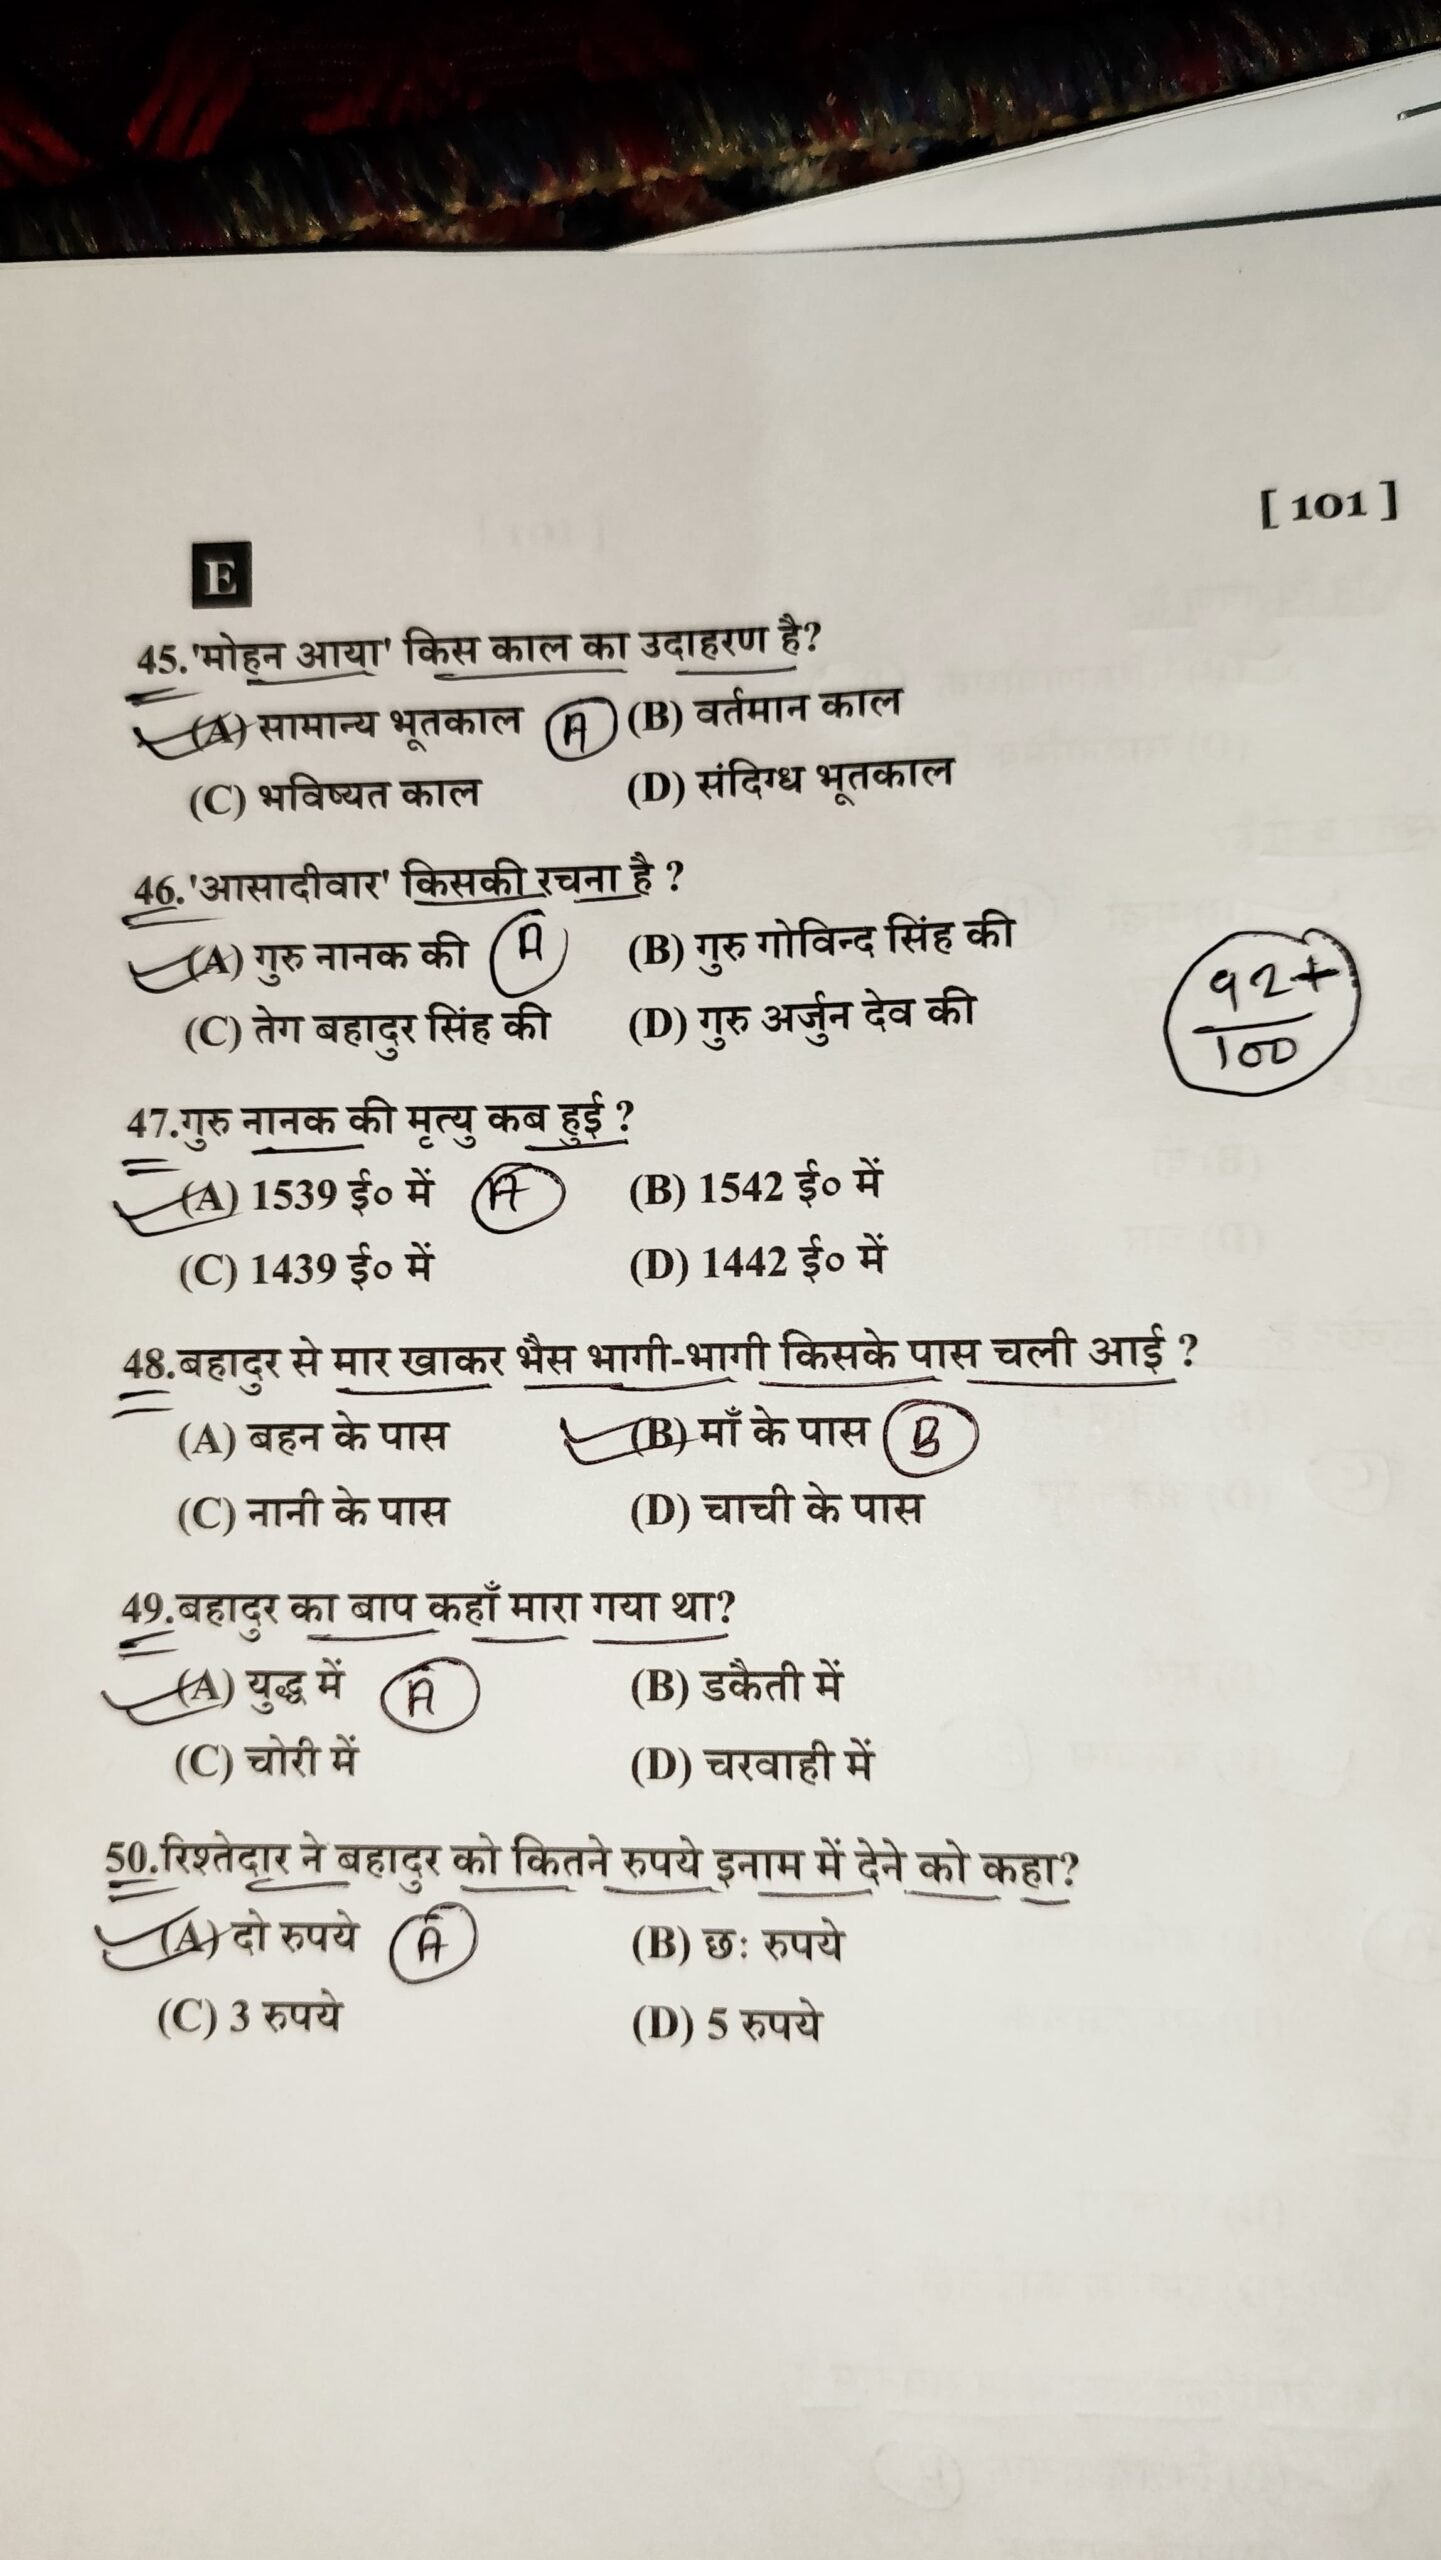 [ 101 ]
E
45.'मोहन आया' किस काल का उदाहरण है?
(A) सामान्य भूतकाल A (B) वर्तमान काल
(C) भविष्यत काल (D) संदिग्ध भूतकाल
46.'आसादीवार' किसकी रचना है ?
(A) गुरु नानक की A (B) गुरु गोविन्द सिंह की
(C) तेग बहादुर सिंह की (D) गुरु अर्जुन देव की
92+
100
47.गुरु नानक की मृत्यु कब हुई ?
(A) 1539 ई० में A (B) 1542 ई० में
(C) 1439 ई० में (D) 1442 ई० में
48.बहादुर से मार खाकर भैस भागी-भागी किसके पास चली आई ?
(A) बहन के पास (B) माँ के पास B
(C) नानी के पास (D) चाची के पास
49.बहादुर का बाप कहाँ मारा गया था?
(A) युद्ध में A (B) डकैती में
(C) चोरी में (D) चरवाही में
50.रिश्तेदार ने बहादुर को कितने रुपये इनाम में देने को कहा?
(A) दो रुपये A (B) छः रुपये
(C) 3 रुपये (D) 5 रुपये